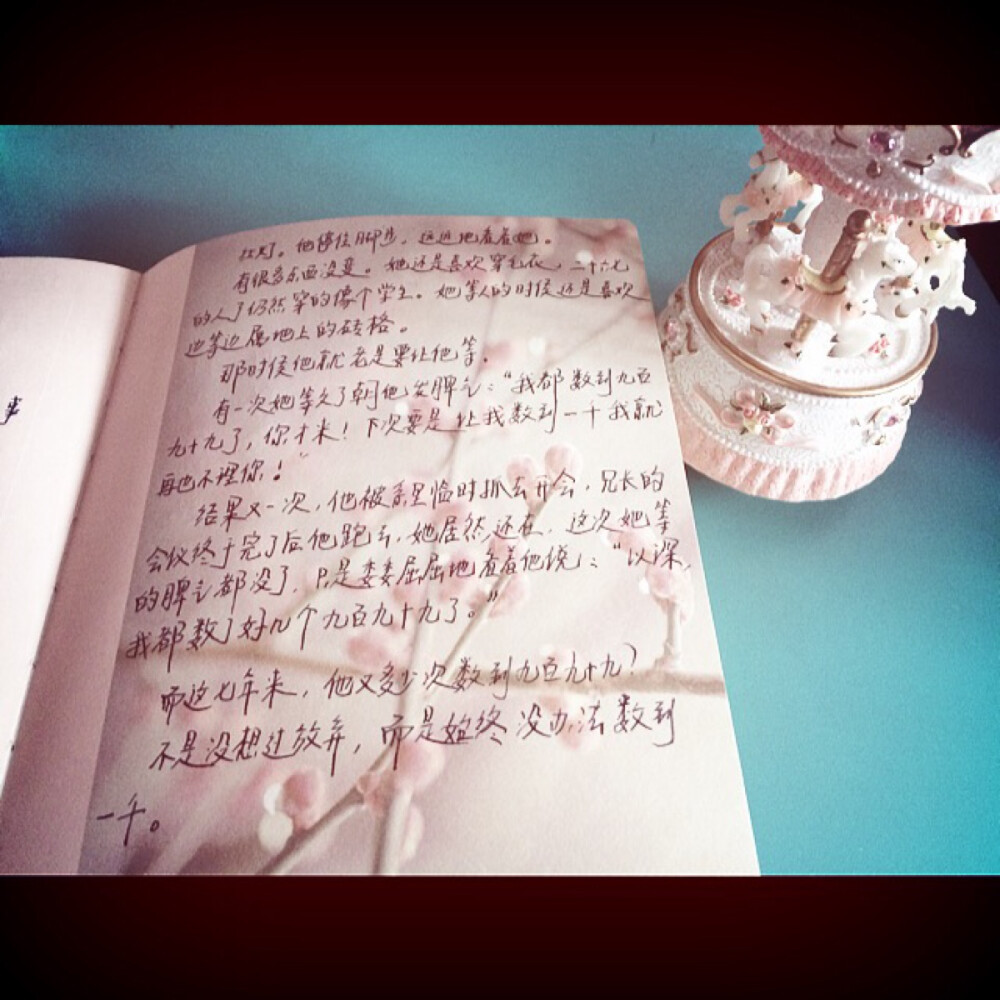 红灯。他停住脚步，远远地看着她。
有很多东西没变。她还是喜欢穿毛衣，二十六七
的人了仍然穿的像个学生。她等人的时候还是喜欢
边等边属地上的砖格。
那时候他就老是要让他等。
有一次她等久了朝他发脾气：“我都数到九百
九十九了，你才来！下次要是让我数到一千我就
再也不理你！”
结果又一次，他被系里临时抓去开会，冗长的
会议终于完了后他跑去，她居然还在，这次她等
的脾气都没了，只是委委屈屈地看着他说：“以琛，
我都数了好几个九百九十九了。”
而这七年来，他又多少次数到九百九十九？
不是没想过放弃，而是始终没办法数到
一千。